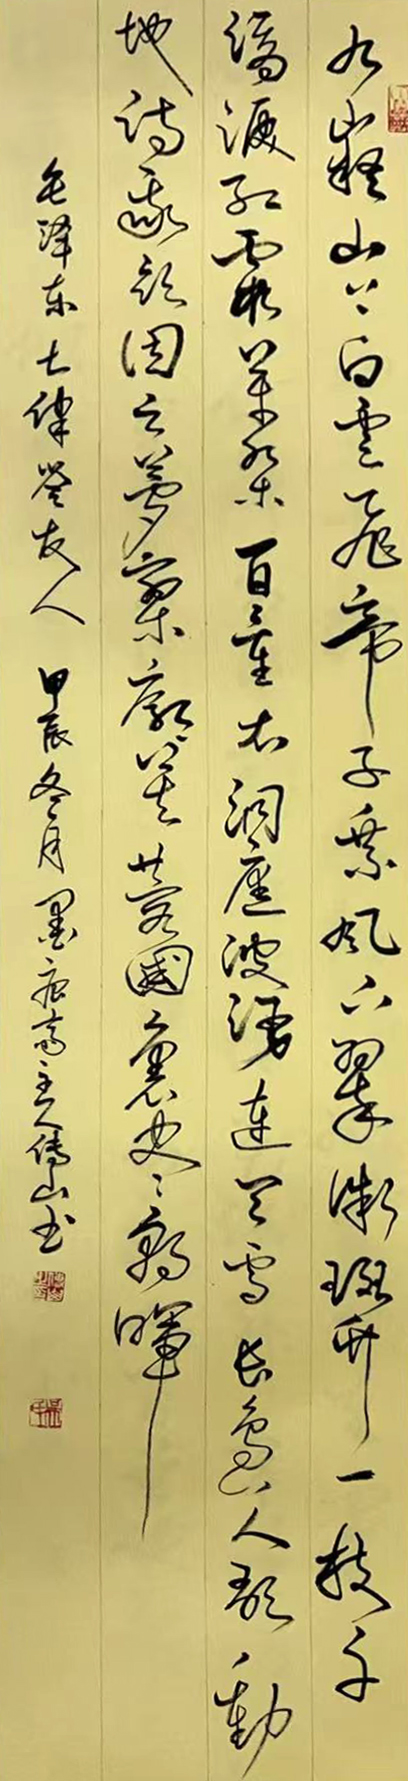 九嶷山上白雲飛帝子乘风下翠微斑竹一枝千
滴淚紅霞萬朵百重衣洞庭波湧連天雪長島人歌動
地詩我欲因之夢寥廓芙蓉國裏盡朝暉
毛泽东七律答友人 甲辰冬月 墨痕斋主人山书